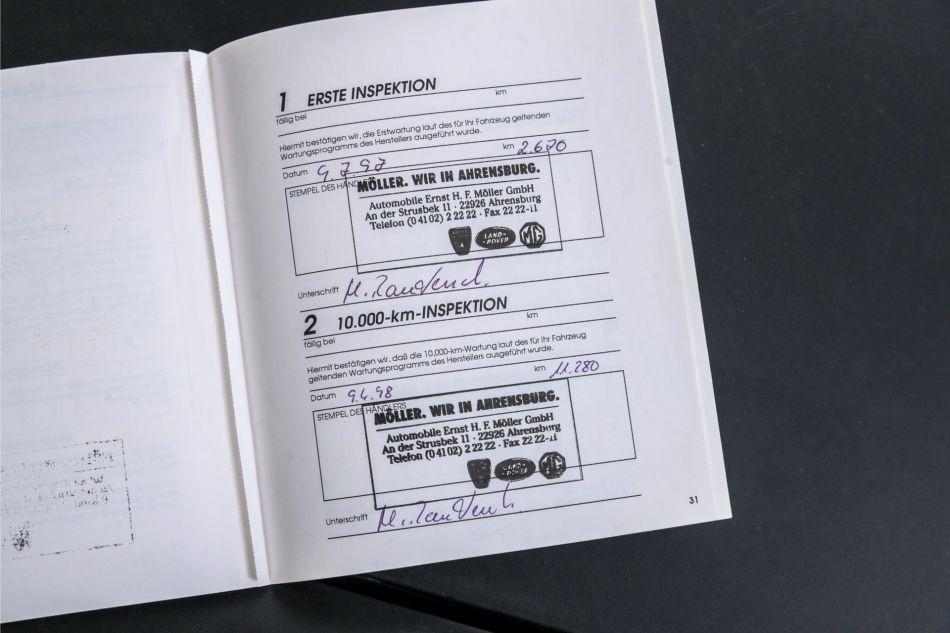 1 ERSTE INSPEKTION
fällig bei km
Hiermit bestätigen wir, die Erstwartung laut des für Ihr Fahrzeug geltenden
Wartungsprogramms des Herstellers ausgeführt wurde.
Datum 9.7.97 km 2.620
STEMPEL DES HÄND
MÖLLER. WIR IN AHRENSBURG.
Automobile Ernst H. F. Möller GmbH
An der Strusbek 11 · 22926 Ahrensburg
Telefon (0 41 02) 2 22 22 · Fax 22 22-11
LAND-
ROVER
MG
Unterschrift
2 10.000-km-INSPEKTION
fällig bei km
Hiermit bestätigen wir, daß die 10,000-km-Wartung laut des für Ihr Fahrzeug
geltenden Wartungsprogramms des Herstellers ausgeführt wurde.
Datum 9.4.98 km 11.280
STEMPEL DES HÄNDLERS
MÖLLER. WIR IN AHRENSBURG.
Automobile Ernst H. F. Möller GmbH
An der Strusbek 11 · 22926 Ahrensburg
Telefon (0 41 02) 2 22 22 · Fax 22 22-11
LAND-
ROVER
MG
Unterschrift
31